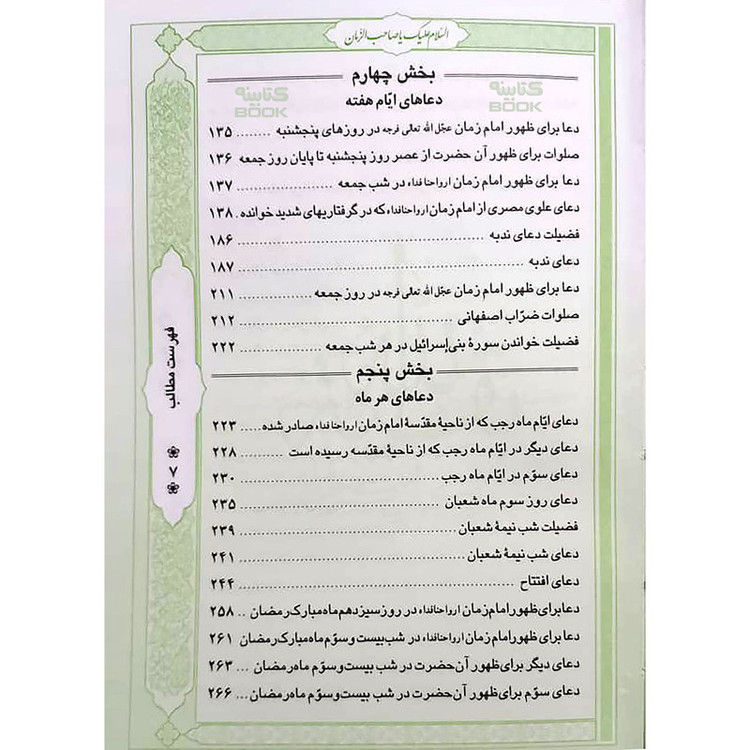 السّلام علیک یا صاحب الزمان
بخش چهارم
دعاهای ایّام هفته
کتابینه
BOOK
کتابینه
BOOK
دعا برای ظهور امام زمان عجّل الله تعالی فرجه در روزهای پنجشنبه ........ ۱۳۵
صلوات برای ظهور آن حضرت از عصر روز پنجشنبه تا پایان روز جمعه ۱۳۶
دعا برای ظهور امام زمان ارواحنا فداه در شب جمعه ................ ۱۳۷
دعای علوی مصری از امام زمان ارواحنا فداه که در گرفتاریهای شدید خوانده . ۱۳۸
فضیلت دعای ندبه ........................................ ۱۸۶
دعای ندبه ................................................ ۱۸۷
دعا برای ظهور امام زمان عجّل الله تعالی فرجه در روز جمعه ................ ۲۱۱
صلوات ضرّاب اصفهانی ........................................ ۲۱۲
فضیلت خواندن سورهٔ بنی‌إسرائیل در هر شب جمعه ................ ۲۲۲
بخش پنجم
دعاهای هر ماه
دعای ایّام ماه رجب که از ناحیهٔ مقدّسهٔ امام زمان ارواحنا فداه صادر شده..... ۲۲۳
دعای دیگر در ایّام ماه رجب که از ناحیهٔ مقدّسه رسیده است .......... ۲۲۸
دعای سوّم در ایّام ماه رجب ................................ ۲۳۰
دعای روز سوم ماه شعبان ................................ ۲۳۵
فضیلت شب نیمهٔ شعبان ................................ ۲۳۹
دعای شب نیمهٔ شعبان ................................ ۲۴۱
دعای افتتاح ........................................ ۲۴۴
دعا برای ظهور امام زمان ارواحنا فداه در روز سیزدهم ماه مبارک رمضان .. ۲۵۸
دعا برای ظهور امام زمان ارواحنا فداه در شب بیست و سوّم ماه مبارک رمضان ۲۶۱
دعای دیگر برای ظهور آن حضرت در شب بیست و سوّم ماه رمضان ... ۲۶۳
دعای سوّم برای ظهور آن حضرت در شب بیست و سوّم ماه رمضان... ۲۶۶
فهرست مطالب
۷